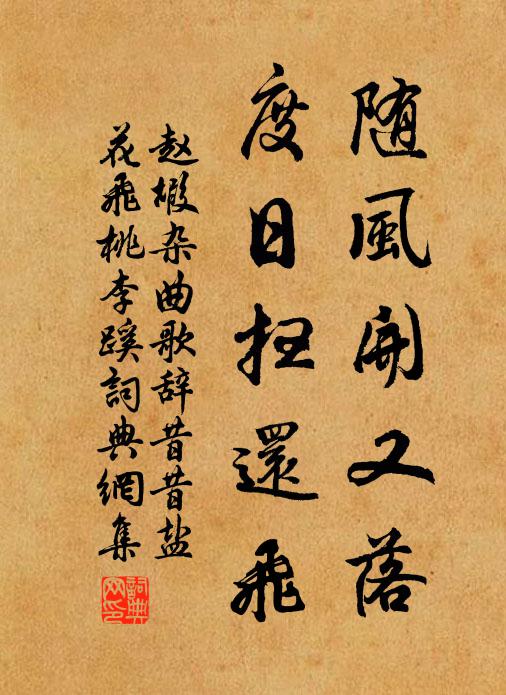 随風開又落
度日扫還飛
赵嘏杂曲歌辞昔昔盐
花飛桃李蹊詞典網集
詞典网印